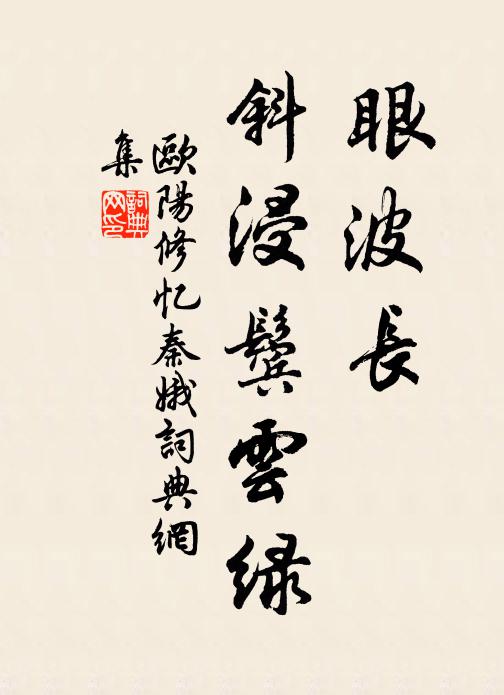 眼波長
斜浸鬢雲緑
歐陽修忆秦娥詞典網
集
詞典
网印